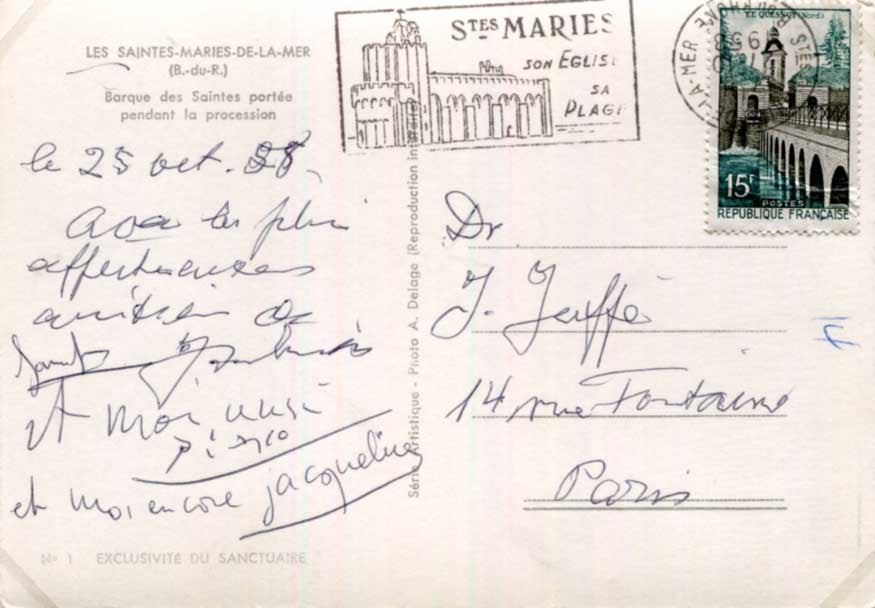 LES SAINTES-MARIES-DE-LA-MER
(B.-du-R.)
Barque des Saintes portée
pendant la procession
STES MARIES
SON EGLISE
SA
PLAGE
LE QUESNOY (Nord)
15F
POSTES
REPUBLIQUE FRANÇAISE
le 25 oct. 58.
avec les plus
affectueuses
amitiés de
et moi aussi
et moi encore jacqueline
Série Artistique - Photo A. Delage (Reproduction
Dr
J.
14 rue Fontaine
Paris
No 1 EXCLUSIVITÉ DU SANCTUAIRE